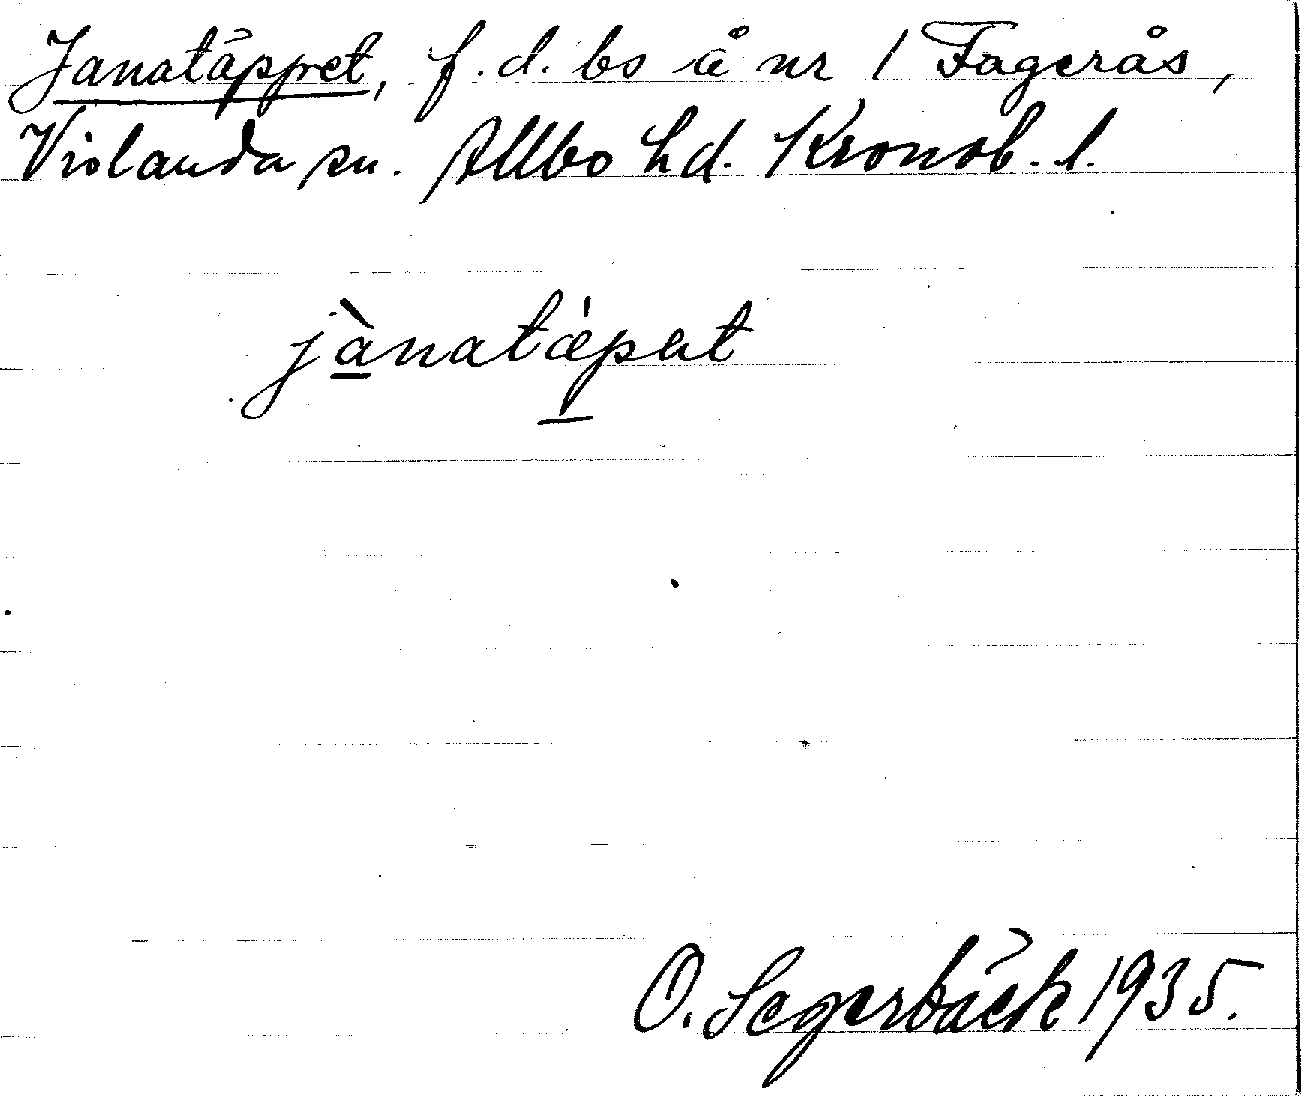 Janatäppet, f. d. bs å nr 1 Fagerås,
Vislanda sn. Allbo hd. Kronob. l.
jànatǽpat
O. Segerbäck 1935.